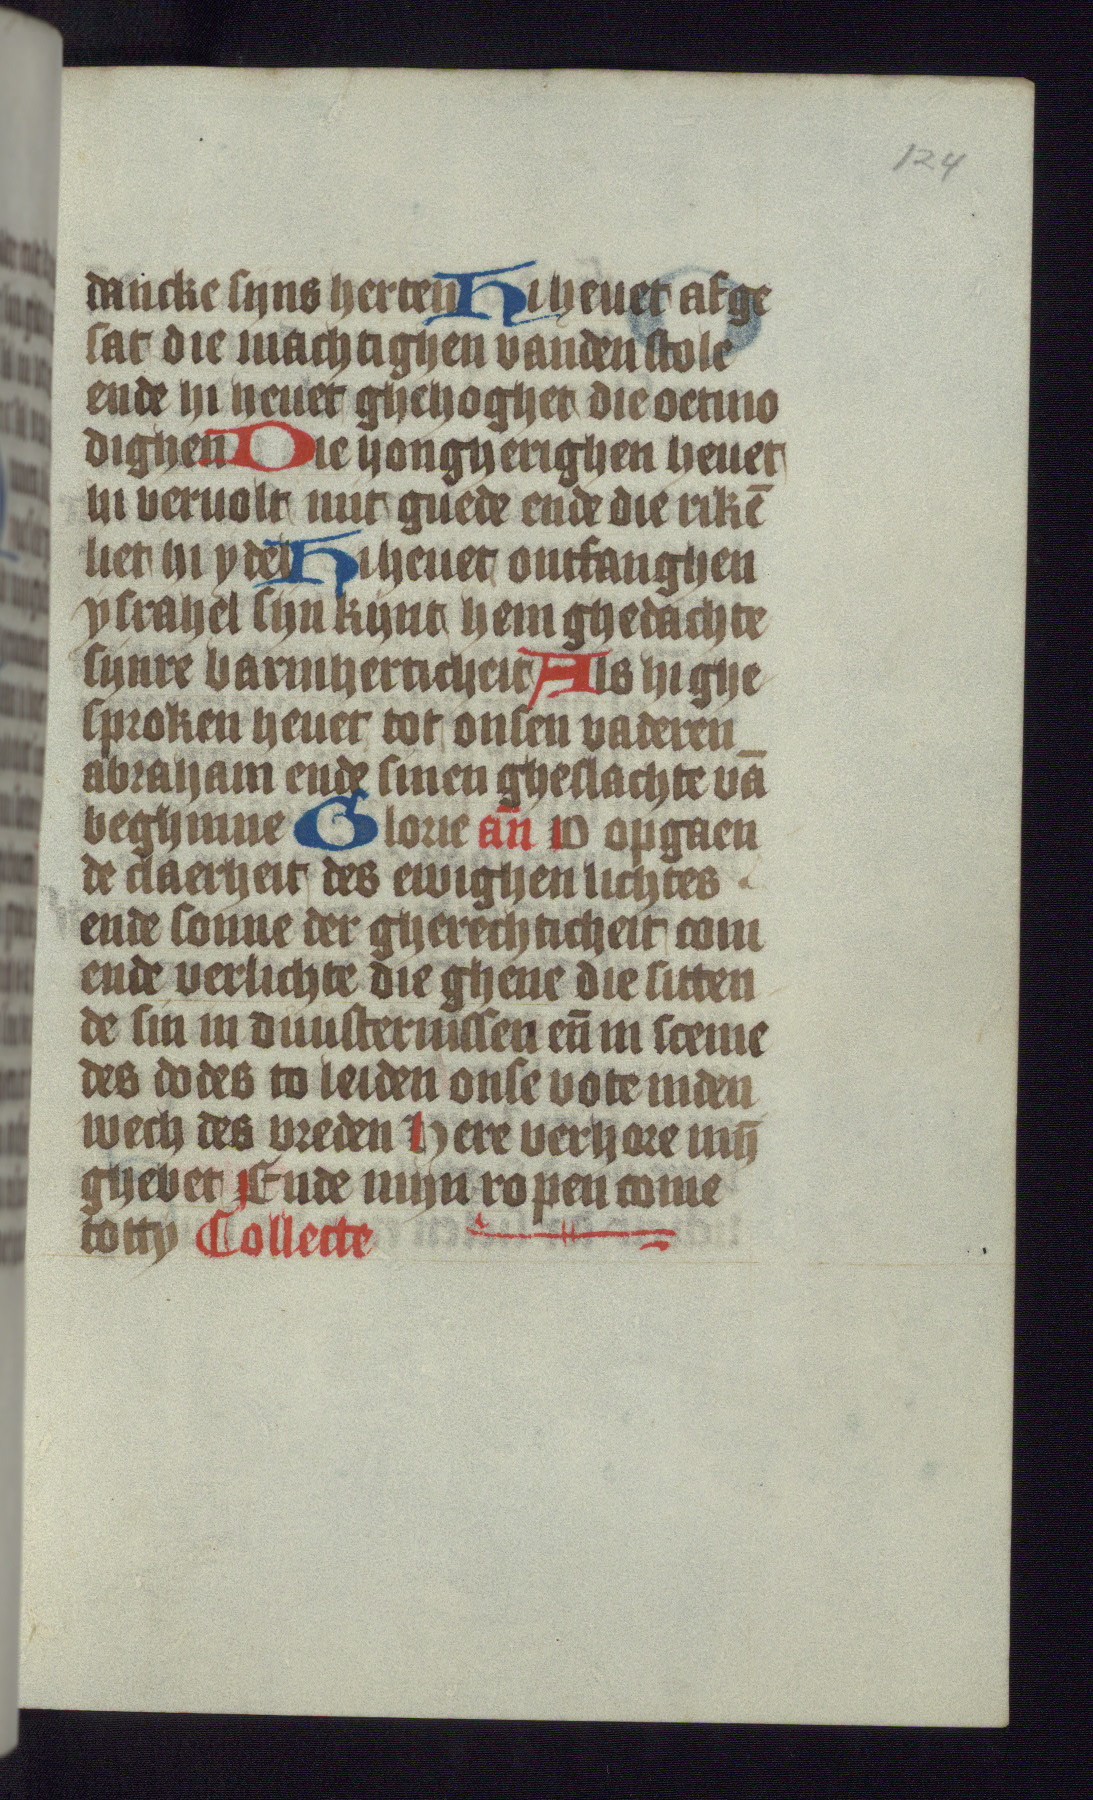 124
dancke syns herten Hi heuet afge
sat die machtighen vanden stole
ende hi heuet ghehoghet die oetmo
dighen Die hongherighen heuet
hi veruolt mit guede ende die rikē
liet hi ydel Hi heuet ontfanghen
ysrahel syn kynt hem ghedachte
synre barmherticheit Als hi ghe
sproken heuet tot onsen vaderen
abraham ende sinen gheslachte vā
beghinne Glorie an̄ O opgaen
de claerheit des ewighen lichtes
ende sonne der gherechticheit com
ende verlichte die ghene die sitten
de sin in duusternissen en̄ in sceme
des dodes to leiden onse vote inden
wech des vreden Here verhore myn̄
ghebet Ende mijn ropen come
totty Collecte